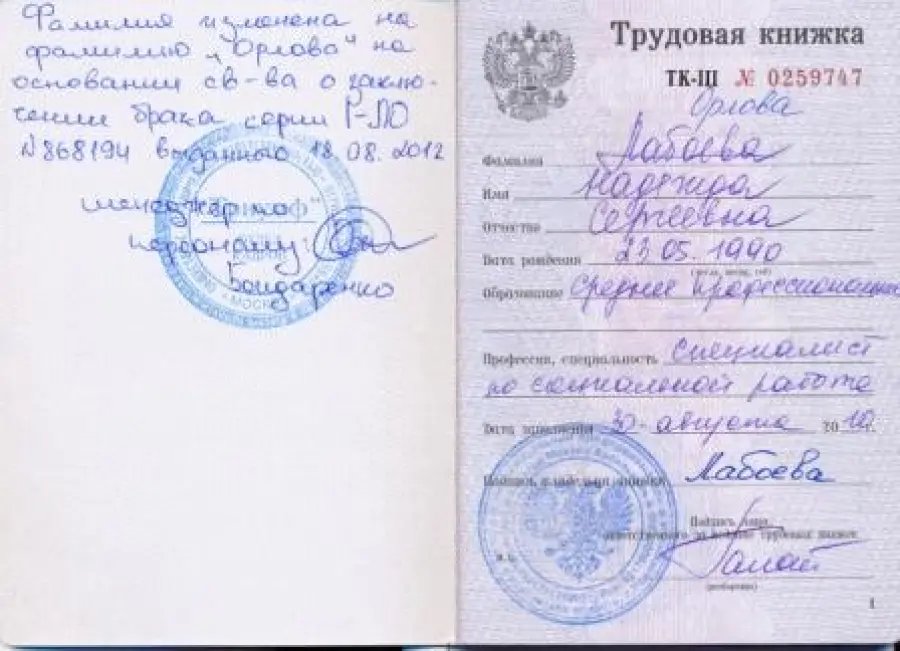 Фамилия изменена на
фамилию „Орлова" на
основании св-ва о заклю-
чении брака серии I-ЛО
N868194 выданного 18.08.2012
менеджер по
персоналу:
Бондаренко
МОСКВА
Трудовая книжка
ТК-III № 0259747
Орлова
Фамилия Лабоева
Имя Надежда
Отчество Сергеевна
Дата рождения 23.05.1990
(число, месяц, год)
Образование Среднее профессиональное
Профессия, специальность специалист
по социальной работе
Дата заполнения 30 августа 2010 г.
Подпись владельца книжки Лабоева
Подпись лица,
ответственного за ведение трудовых книжек
М.П.
(разборчиво)
1